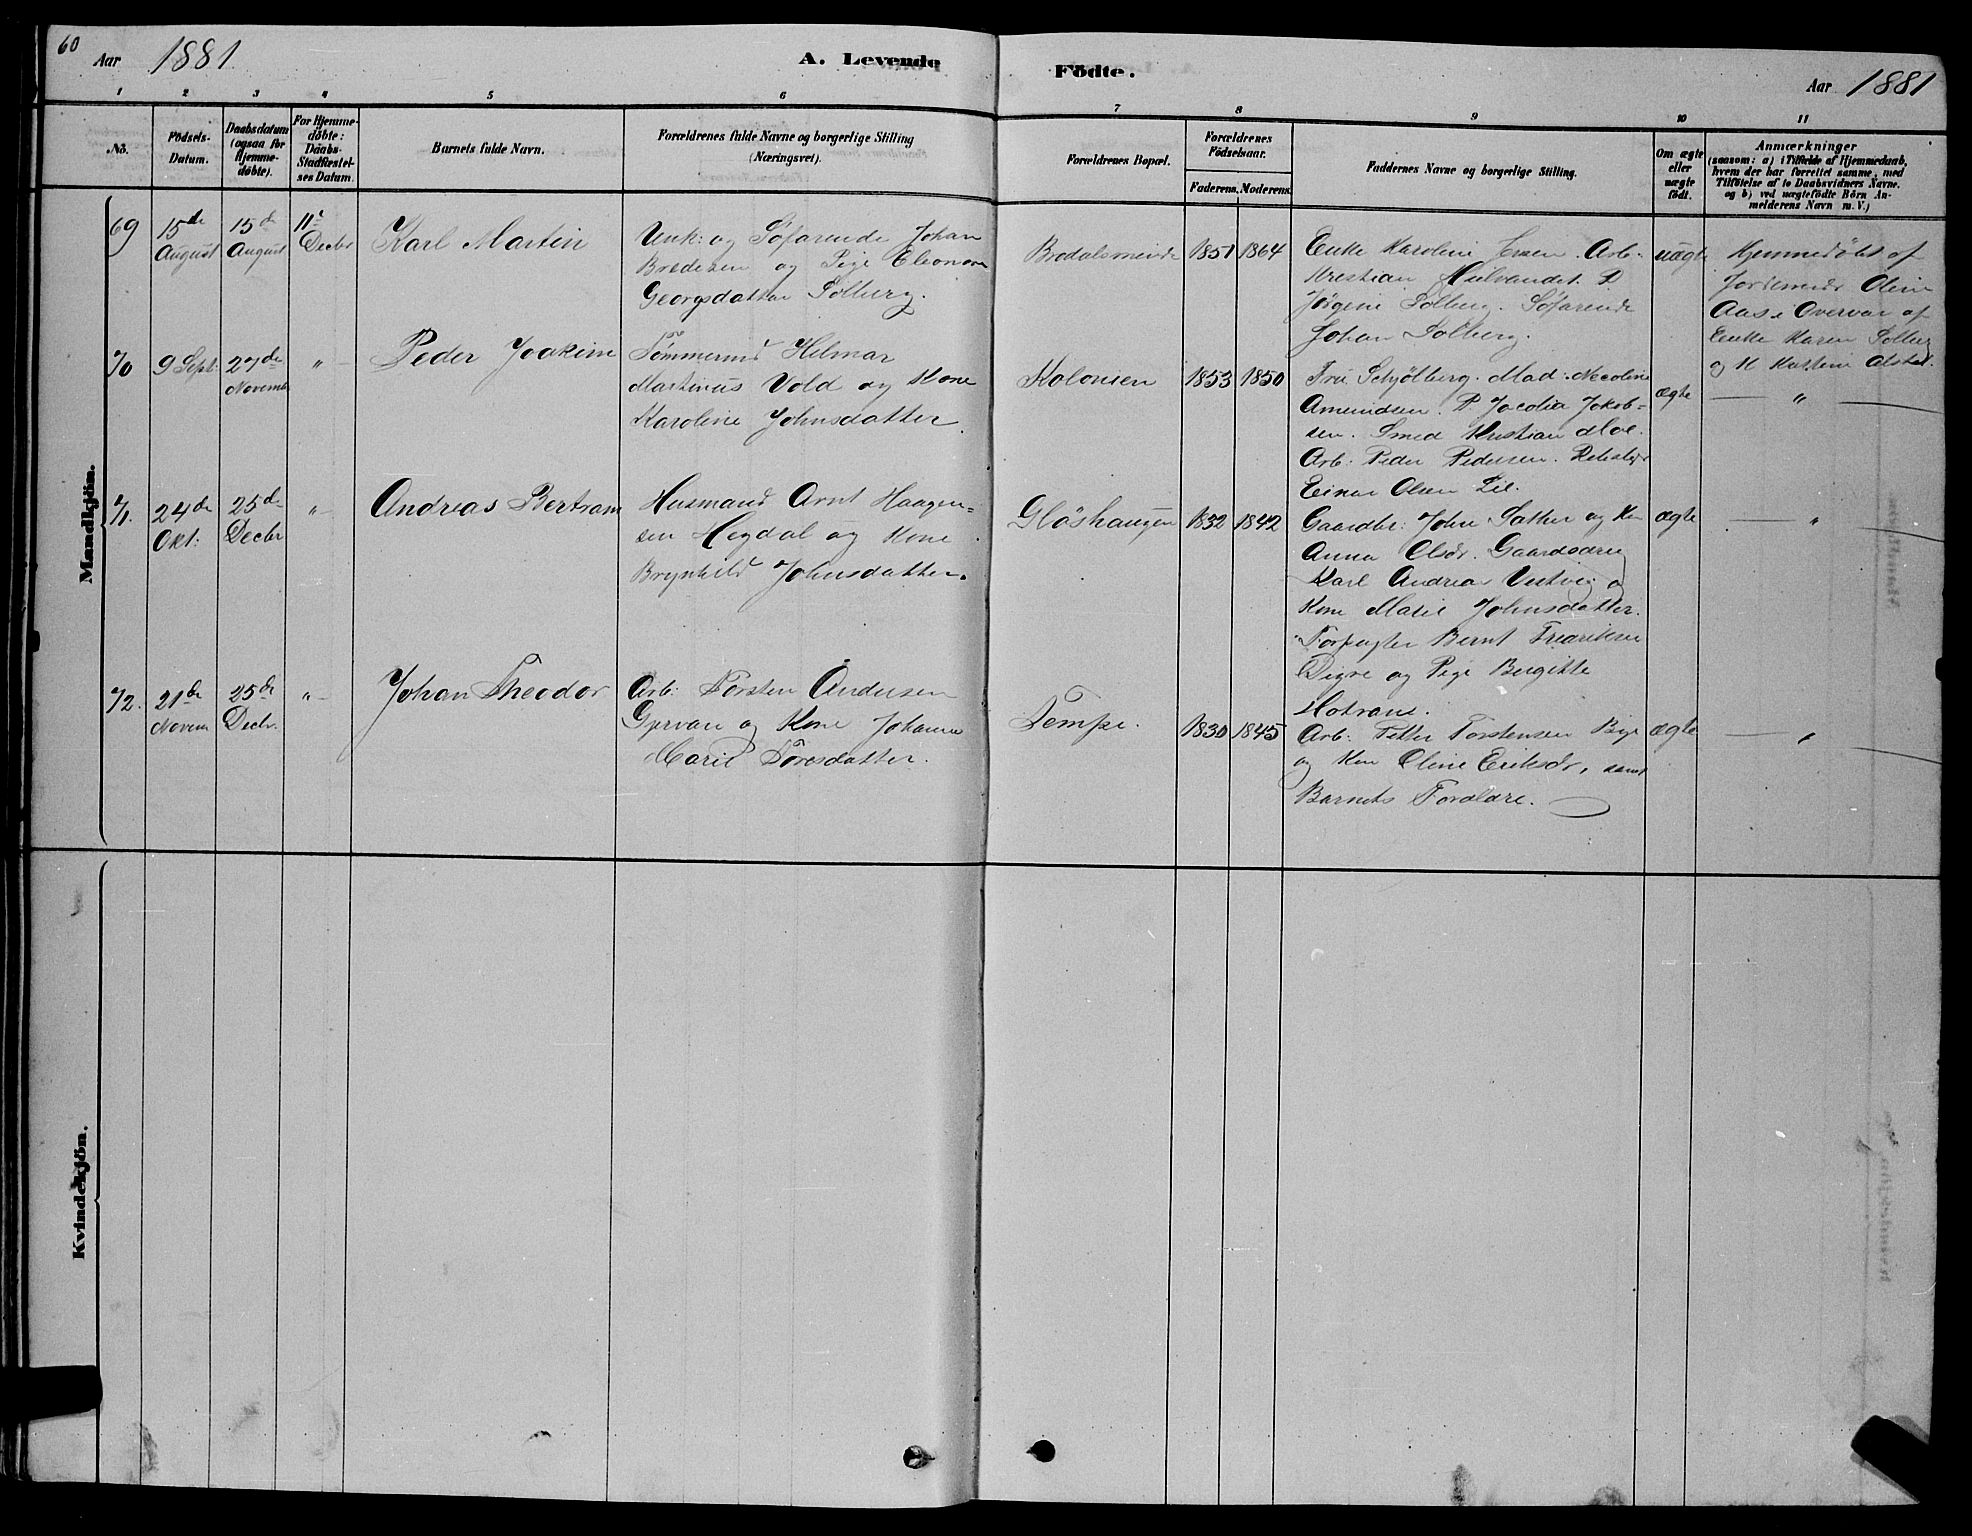 60
Aar 1881
A. Levende Födte.
Aar 1881
1 2 3 4 5 6 7 8 9 10 11
No.
Födsels-
Datum.
Daabsdatum
(ogsaa for
Hjemme-
döbte).
For Hjemme-
döbte:
Daabs-
Stadfæstel-
ses Datum.
Barnets fulde Navn.
Forældrenes fulde Navne og borgerlige Stilling
(Næringsvei).
Forældrenes Bopæl.
Forældrenes
Födselsaar.
Faderens. Moderens.
Faddernes Navne og borgerlige Stilling.
Om ægte
eller
uægte
födt.
Anmærkninger
(saasom: a) i Tilfælde af Hjemmedaab,
hvem der har forrettet samme, med
Tilföielse af to Daabsvidners Navne,
og b) ved uægtefödte Börn An-
melderens Navn m. V.)
Mandkjön.
69
15de
August
15de
August
11te
Decbr
Karl Martin
Unk: og Søfarende Johan
Bredesen og Pige Eleonora
Georgsdatter Solberg.
1851 1864
Enke Karoline Arb:
Kristian P
Jørgine Solberg. Søfarende
Johan Solberg.
uægte
Hjemmedøbt af
Jordemoder Oline
Aas, Overvær af
Enke Karen Solberg
og
70
9 Sept:
27de
Novembr
"
Peder Joakim
Tømmermd Hilmar
Martinus Vold og Kone
Karoline Johnsdatter
Kolonien
1853 1850
Fru Schjølberg. Mad: Nicoline
Amundsen. P Jokob-
sen. Smed Kristian Moe.
Arb: Peder Pedersen.
Einar Olsen Lil.
ægte
"
71.
24de
Okt:
25de
Decbr
"
Andreas Bertram
Husmand Arnt Haagen-
sen Hegdal og Kone
Brynhild Johnsdatter.
Gløshaugen
1832 1842
Gaardbr: John Sæther og Kone
Anna Olsdr. Gaardsdreng
Karl Andreas og
Kone Marie Johnsdatter.
Forpagter Bernt Fredriksen
Digre og Pige Birgitte
Hotrane.
ægte
"
72.
21de
Novem
25de
Decbr.
"
Johan Theodor
Arb: Torsten Andersen
og Kone Johanna
Marie Toresdatter.
Tempe.
1830 1845
Arb: Petter Torstensen
og Kone Oline Eriksdr, samt
Barnets Forældre.
ægte
"
Kvindekjön.